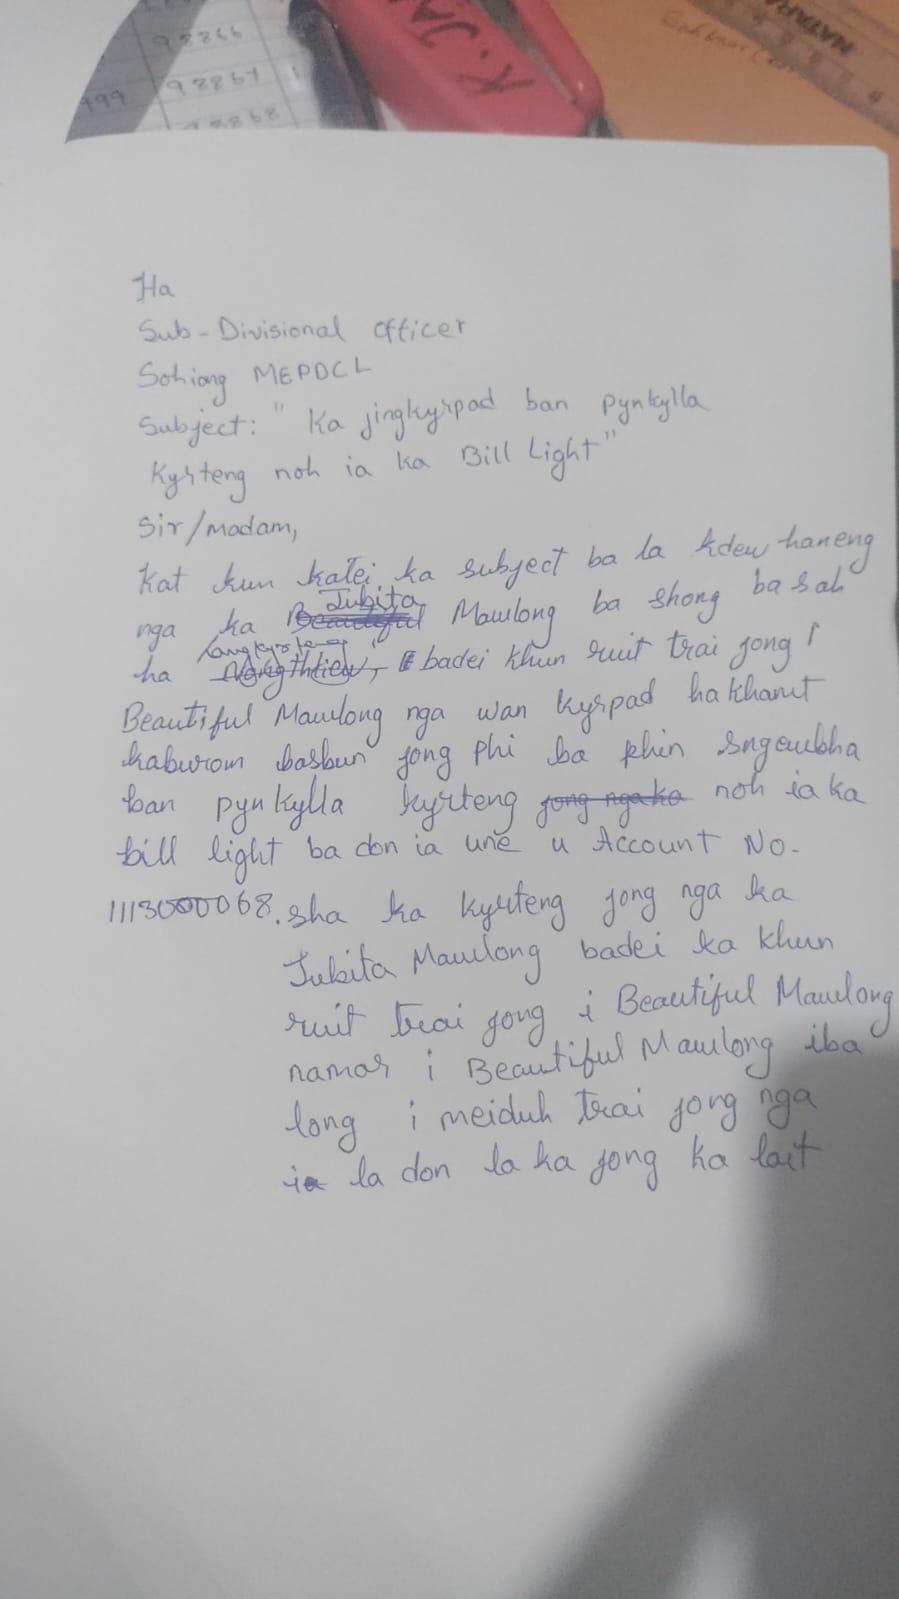 98866
999 98867 1
98868
K.JM
NATARA
Ha
Sub-Divisional Officer
Sohiong MEPDCL
Subject: "Ka jingkyrpad ban pynkylla
Kyrteng noh ia ka Bill Light"
Sir/madam,
Kat kum katei ka subject ba la kdew haneng
nga ka Jubita Mawlong ba shong ba sah
ha badei khun ruit trai jong i
Beautiful Mawlong nga wan kyrpad ha khamt
kaburom basbun jong phi ba phin sngewbha
ban pynkylla kyrteng jong nga ka noh ia ka
bill light ba don ia une u Account No.
1113000068. sha ka kyrteng jong nga ka
Jubita Mawlong badei ka khun
ruit trai jong i Beautiful Mawlong
namar i Beautiful Mawlong iba
long i meiduh trai jong nga
la don la ka jong ka lait